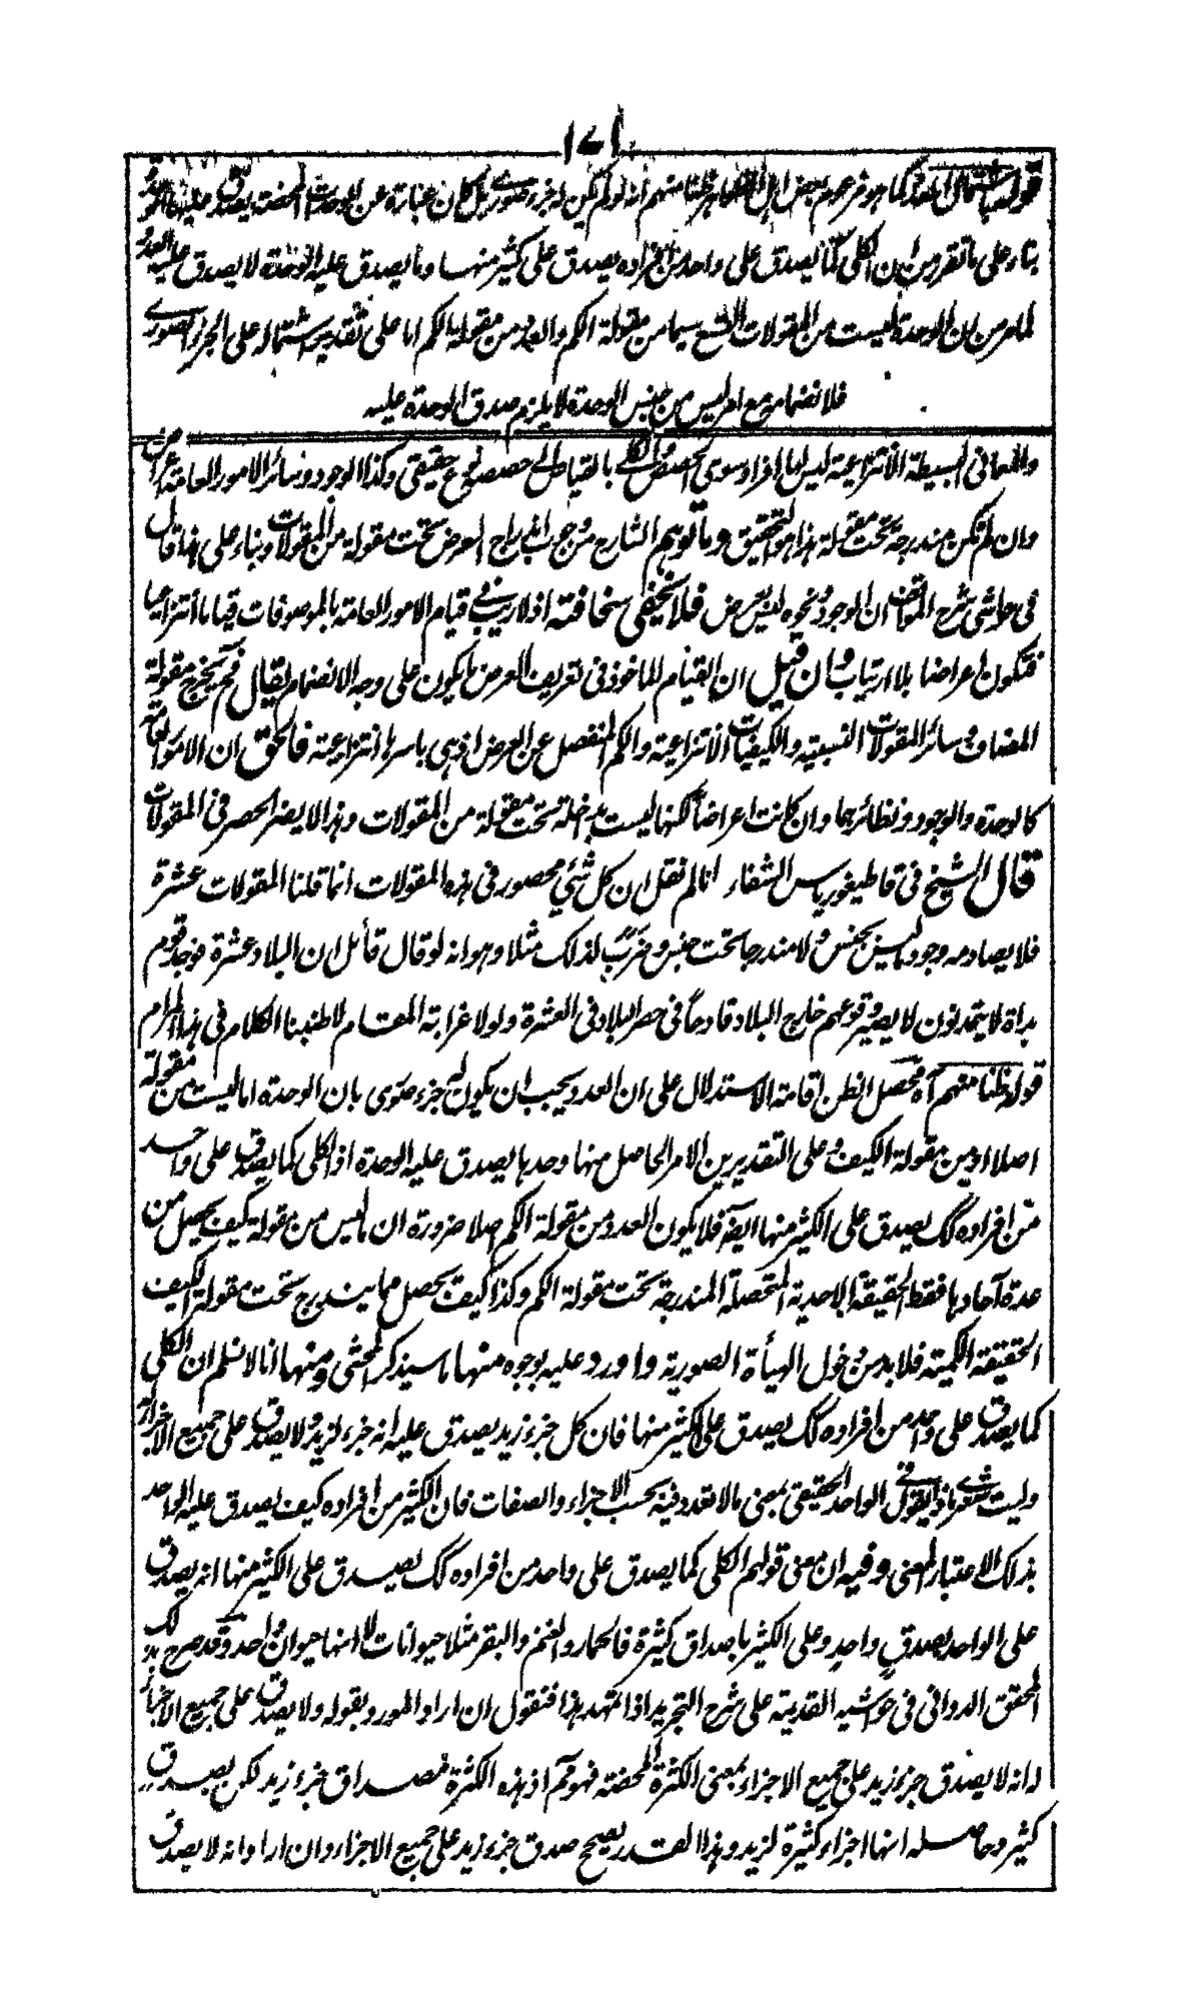 ١٧١
قوله باشتماله على كما هو مزعوم بعض ظنا منهم انه لو لم يكن له جزء صورى بل كان عبارة عن الوحدات المحضة يصدق عليها
بناء على ما تقرر من ان الكلى كما يصدق على واحد من افراده يصدق على كثير منها وما يصدق عليه الوحدة لا يصدق عليه العدد
لما مر من ان الوحدة ليست من المقولات التسع سيما من مقولة الكم والعدد من مقولة الكم اما على تقدير اشتماله على الجزء الصورى
فلانضمامه مع امر ليس من جنس الوحدة لا يلزم صدق الوحدة عليه
والمعانى البسيطة الانتزاعية ليس لها افراد سوى الحصص بالقياس الى حصصه نوع حقيقى وكذا الوجود وسائر الامور العامة اعراض
وان لم تكن مندرجة تحت مقولة هذا هو التحقيق وما توهم الشارح من وجوب اندراج العرض تحت مقولة من المقولات وبناء على هذا قال
فى حواشى شرح المواقف ان الوجود ونحوه ليس بعرض فلا يخفى سخافته اذ لا ريب فى قيام الامور العامة بالموصوفات قياما انتزاعيا
فتكون اعراضا بلا ارتياب وان قيل ان القيام الماخوذ فى تعريف العرض ما يكون على وجه الانضمام يقال فح يخرج مقولة
المضاف وسائر المقولات النسبية والكيفيات الانتزاعية والكم المنفصل عن العرض اذ هى باسرها انتزاعية فالحق ان الامور العامة
كالوحدة والوجود ونظائرهما وان كانت اعراضا لكنها ليست بداخلة تحت مقولة من المقولات وهذا لا يضر الحصر فى المقولات
قال الشيخ فى قاطيغورياس الشفاء انا لم نقل ان كل شئ محصور فى هذه المقولات انما قلنا المقولات عشرة
فلا يصادمه وجود ما ليس بجنس ولا مندرجا تحت جنس وضرب لذلك مثلا وهو انه لو قال قائل ان البلاد عشرة فوجد قوم
بداة لا يتمدنون لا يصير وقوعهم خارج البلاد قادحا فى حصر البلاد فى العشرة ولولا غرابة المقام لاطنبنا الكلام فى هذا المرام
قوله ظنا منهم آه محصل الظن اقامة الاستدلال على ان العدد يجب ان يكون له جزء صورى بان الوحدة اما ليست من مقولة
اصلا او من مقولة الكيف وعلى التقديرين الامر الحاصل منها وحدها يصدق عليه الوحدة اذ الكلى كما يصدق على واحد
من افراده كك يصدق على الكثير منها ايضا فلا يكون العدد من مقولة الكم اصلا ضرورة ان ما ليس من مقولة كيف يحصل من
عدة آحادها فقط الحقيقة الاحدية المتحصلة المندرجة تحت مقولة الكم وكذا كيف يحصل مما يندرج تحت مقولة الكيف
الحقيقة الكمية فلا بد من دخول الهيأة الصورية واورد عليه بوجوه منها ما سيذكر المحشى ومنها انا لا نسلم ان الكلى
كما يصدق على واحد من افراده كك يصدق على الكثير منها فان كل جزء زيد يصدق عليه انه جزء لزيد ولا يصدق على جميع الاجزاء
وليت شعرى ماذا يقول فى الواحد الحقيقى بمعنى ما لا تعدد فيه بحسب الاجزاء والصفات فان الكثير من افراده كيف يصدق عليه الواحد
بذلك الاعتبار المعنى وفيه ان معنى قولهم الكلى كما يصدق على واحد من افراده كك يصدق على الكثير منها انه يصدق
على الواحد بصدق واحد وعلى الكثير باصداق كثيرة فالحمار والغنم والبقر مثلا حيوانات لا انها حيوان واحد وقد صرح بذلك
المحقق الدوانى فى حواشيه القديمة على شرح التجريد اذا تمهد هذا فنقول ان اراد المورد بقوله ولا يصدق على جميع الاجزاء
انه لا يصدق جزء زيد على جميع الاجزاء بمعنى الكثرة المحضة فهو مم اذ هذه الكثرة مصداق جزء زيد لكن بصدق
كثير وحاصله انها اجزاء كثيرة لزيد وهذا القدر يصحح صدق جزء زيد على جميع الاجزاء وان اراد انه لا يصدق